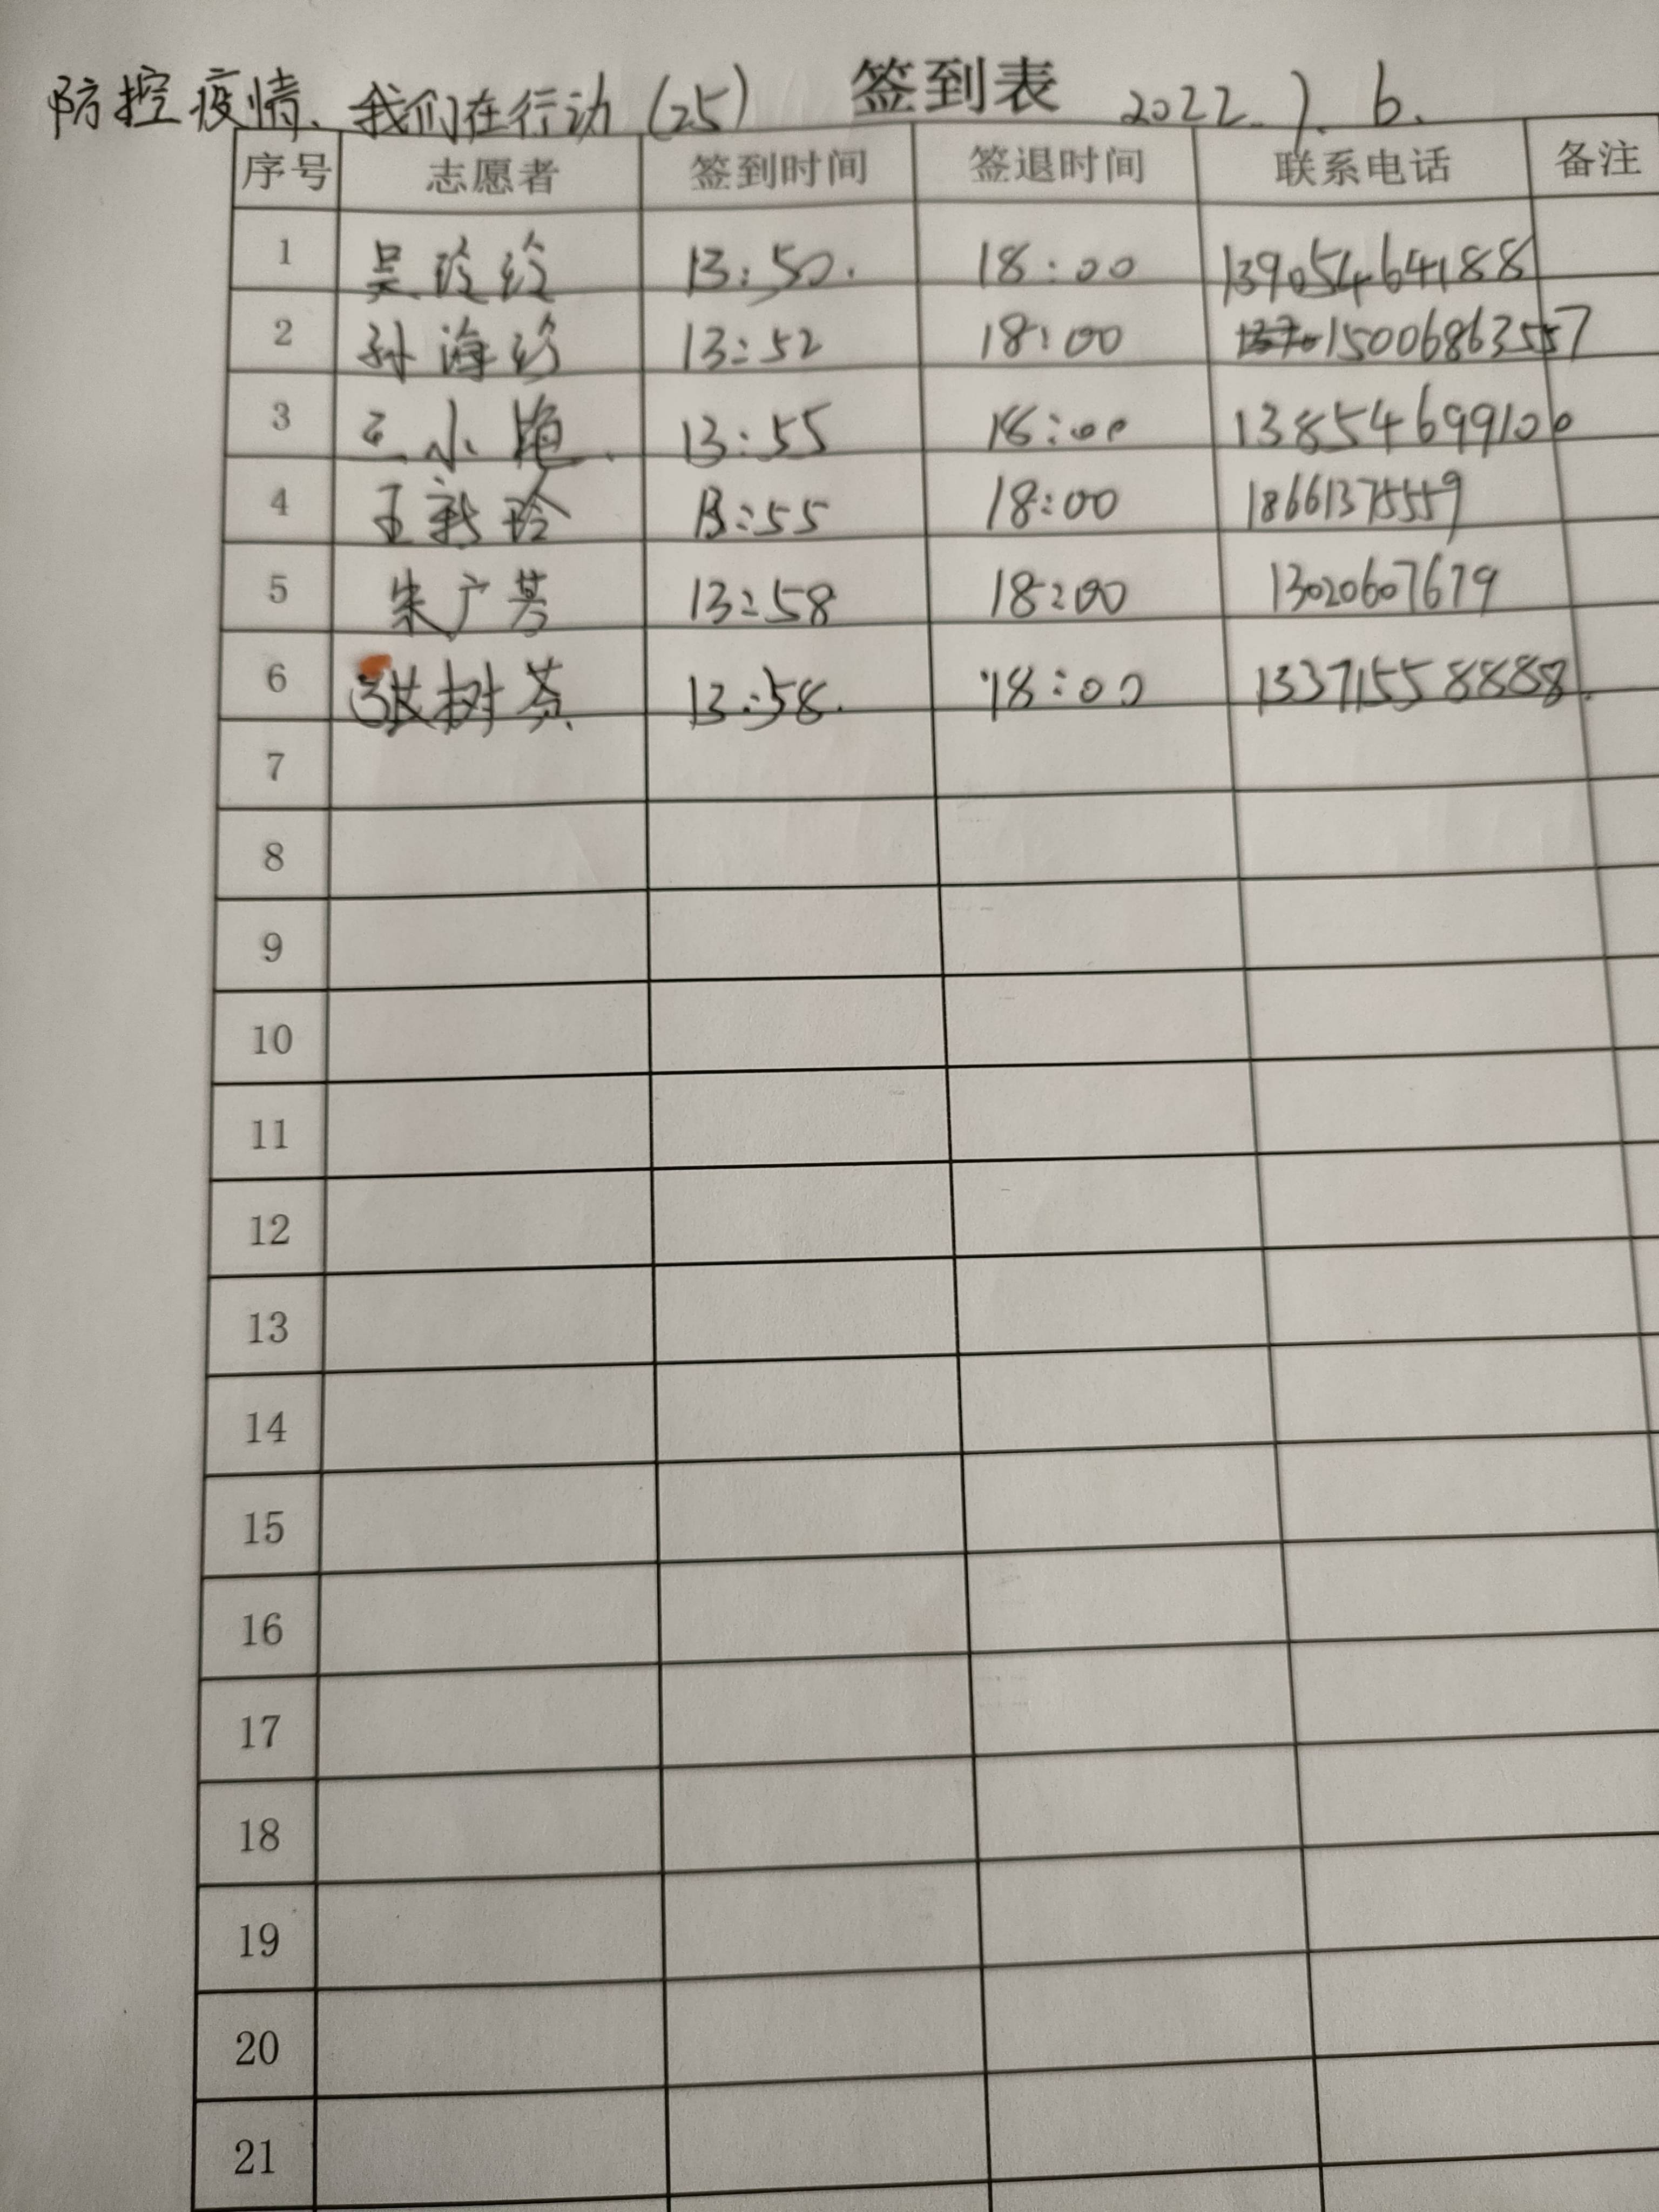 防控疫情、我们在行动（25） 签到表 2022.7.6.
序号 志愿者 签到时间 签退时间 联系电话 备注
1 吴玲玲 13:50. 18:00 13905464188
2 孙海珍 13:52 18:00 15006863557
3 王小艳. 13:55 18:00 13854699100
4 王新玲 13:55 18:00 18661375559
5 朱广芳 13:58 18:00 13020607679
6 张树芬. 13:58. 18:00 13371558888.
7
8
9
10
11
12
13
14
15
16
17
18
19
20
21